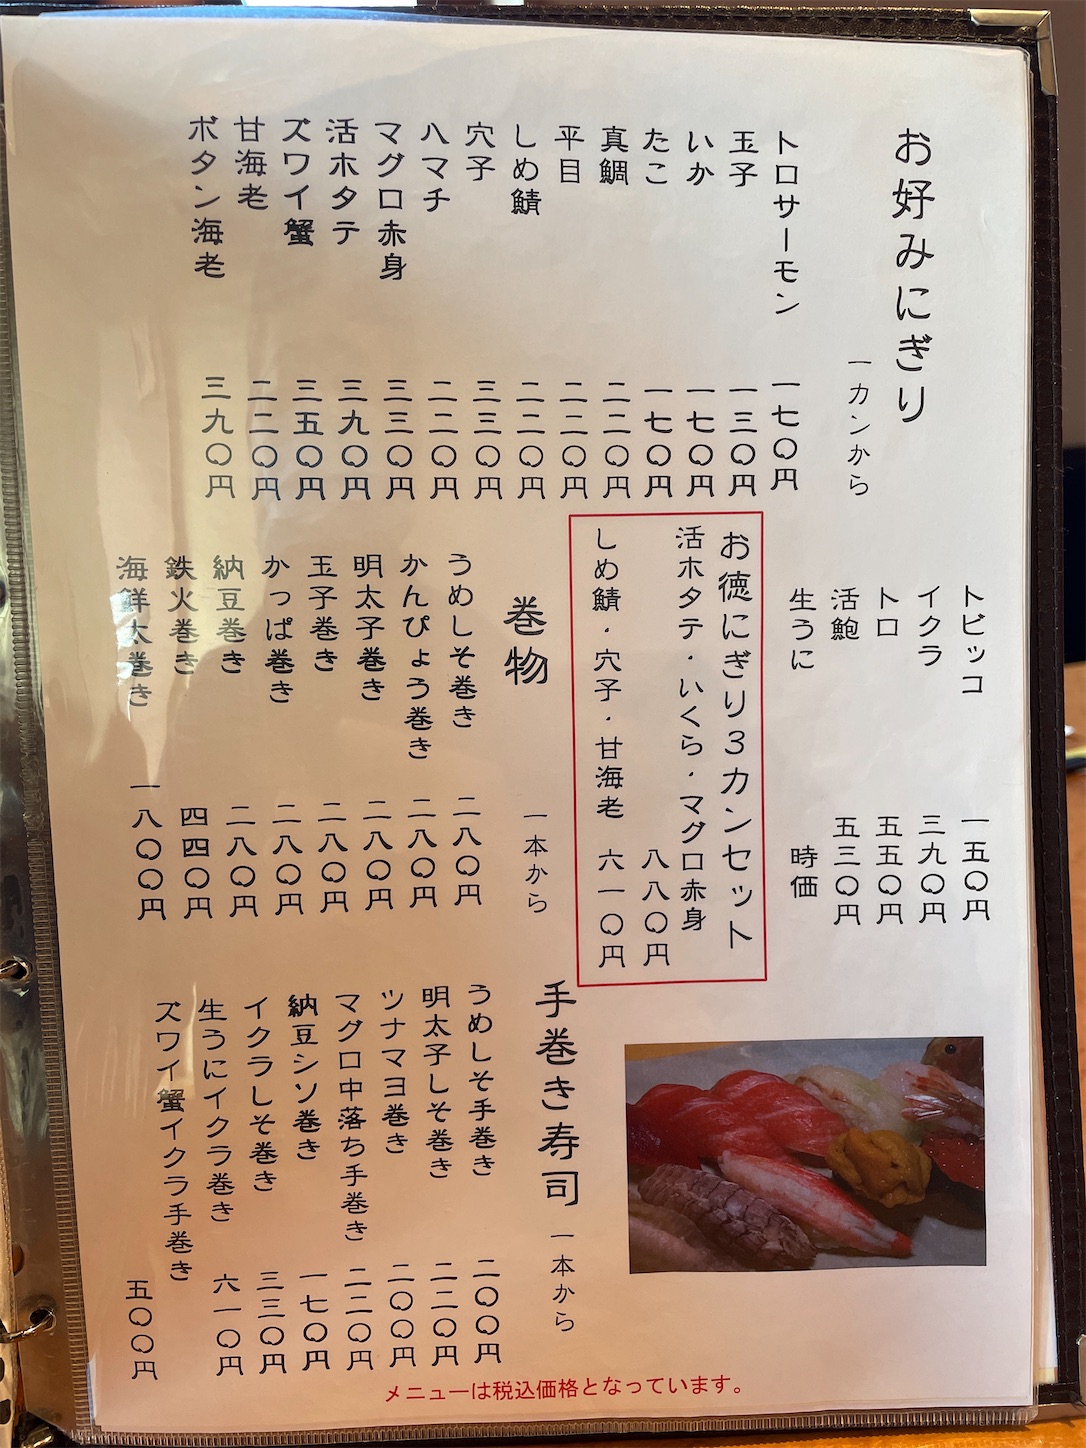 お好みにぎり 一カンから
トロサーモン 一七〇円
玉子 一三〇円
いか 一七〇円
たこ 一七〇円
真鯛 二二〇円
平目 二二〇円
しめ鯖 二二〇円
穴子 三三〇円
ハマチ 二二〇円
マグロ赤身 三三〇円
活ホタテ 三九〇円
ズワイ蟹 三五〇円
甘海老 二二〇円
ボタン海老 三九〇円
トビッコ 一五〇円
イクラ 三九〇円
トロ 五五〇円
活鮑 五三〇円
生うに 時価
お徳にぎり3カンセット
活ホタテ・いくら・マグロ赤身
八八〇円
しめ鯖・穴子・甘海老 六一〇円
巻物 一本から
うめしそ巻き 二八〇円
かんぴょう巻き 二八〇円
明太子巻き 二八〇円
玉子巻き 二八〇円
かっぱ巻き 二八〇円
納豆巻き 二八〇円
鉄火巻き 四四〇円
海鮮太巻き 一八〇〇円
手巻き寿司 一本から
うめしそ手巻き 二〇〇円
明太子しそ巻き 二二〇円
ツナマヨ巻き 二〇〇円
マグロ中落ち手巻き 二二〇円
納豆シソ巻き 一七〇円
イクラしそ巻き 三三〇円
生うにイクラ巻き 六一〇円
ズワイ蟹イクラ手巻き 五〇〇円
メニューは税込価格となっています。